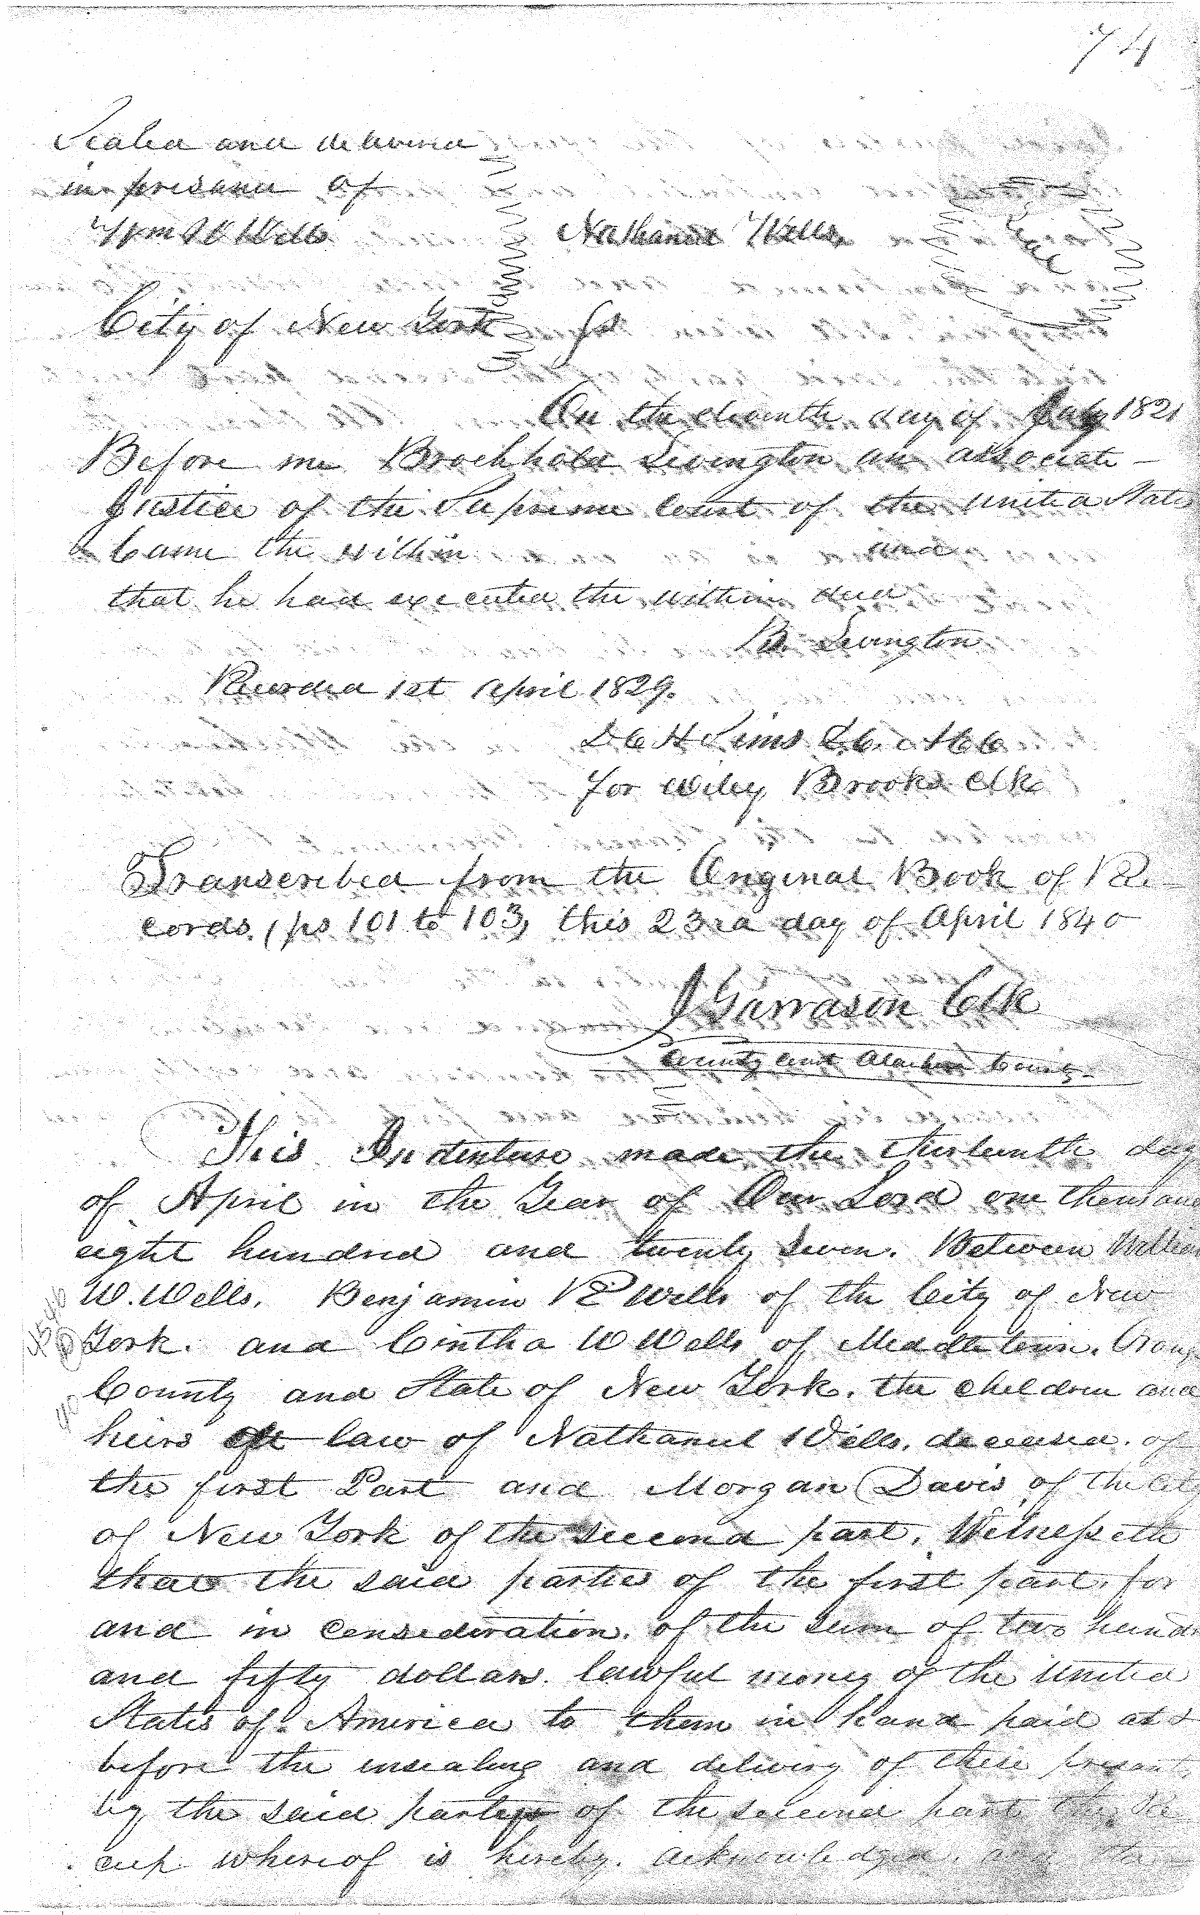 74
Sealed and delivered
in presance of
Wm W Wells Nathaniel Wells, Seal
City of New York Ss
On the eleventh day of July 1821
Before me Brockhold Livington an associate
Justice of the Supreme Court of the united States
Came the within and
that he had executed the within deed
B. Livington
Recorded 1st April 1829.
Sims D.C. A C C
for Wiley Brooks Clk
Transcribed from the Original Book of Re-
cords, ps 101 to 103, this 23rd day of April 1840
J Garrason Clk
County Court Alachua County
This Indenture made the thirteenth day
of April in the Year of Our Lord one thousand
eight hundred and twenty seven. Between William
W. Wells, Benjamin P Wells of the City of New
York. and Cintha W Wells of Meddletown. Orange
County and State of New York. the children and
heirs att law of Nathaniel Wells. deceased. of
the first Part and Morgan Davis of the City
of New York of the second part. Witnesseth
that the said parties of the first part. for
and in consederation. of the sum of two hundred
and fifty dollars. lawful money of the United
States of America to them in hand paid at &
before the ensealing and delivery of these presents
by the said party of the second part the Re
ceip whereof is hereby. acknowledged. and